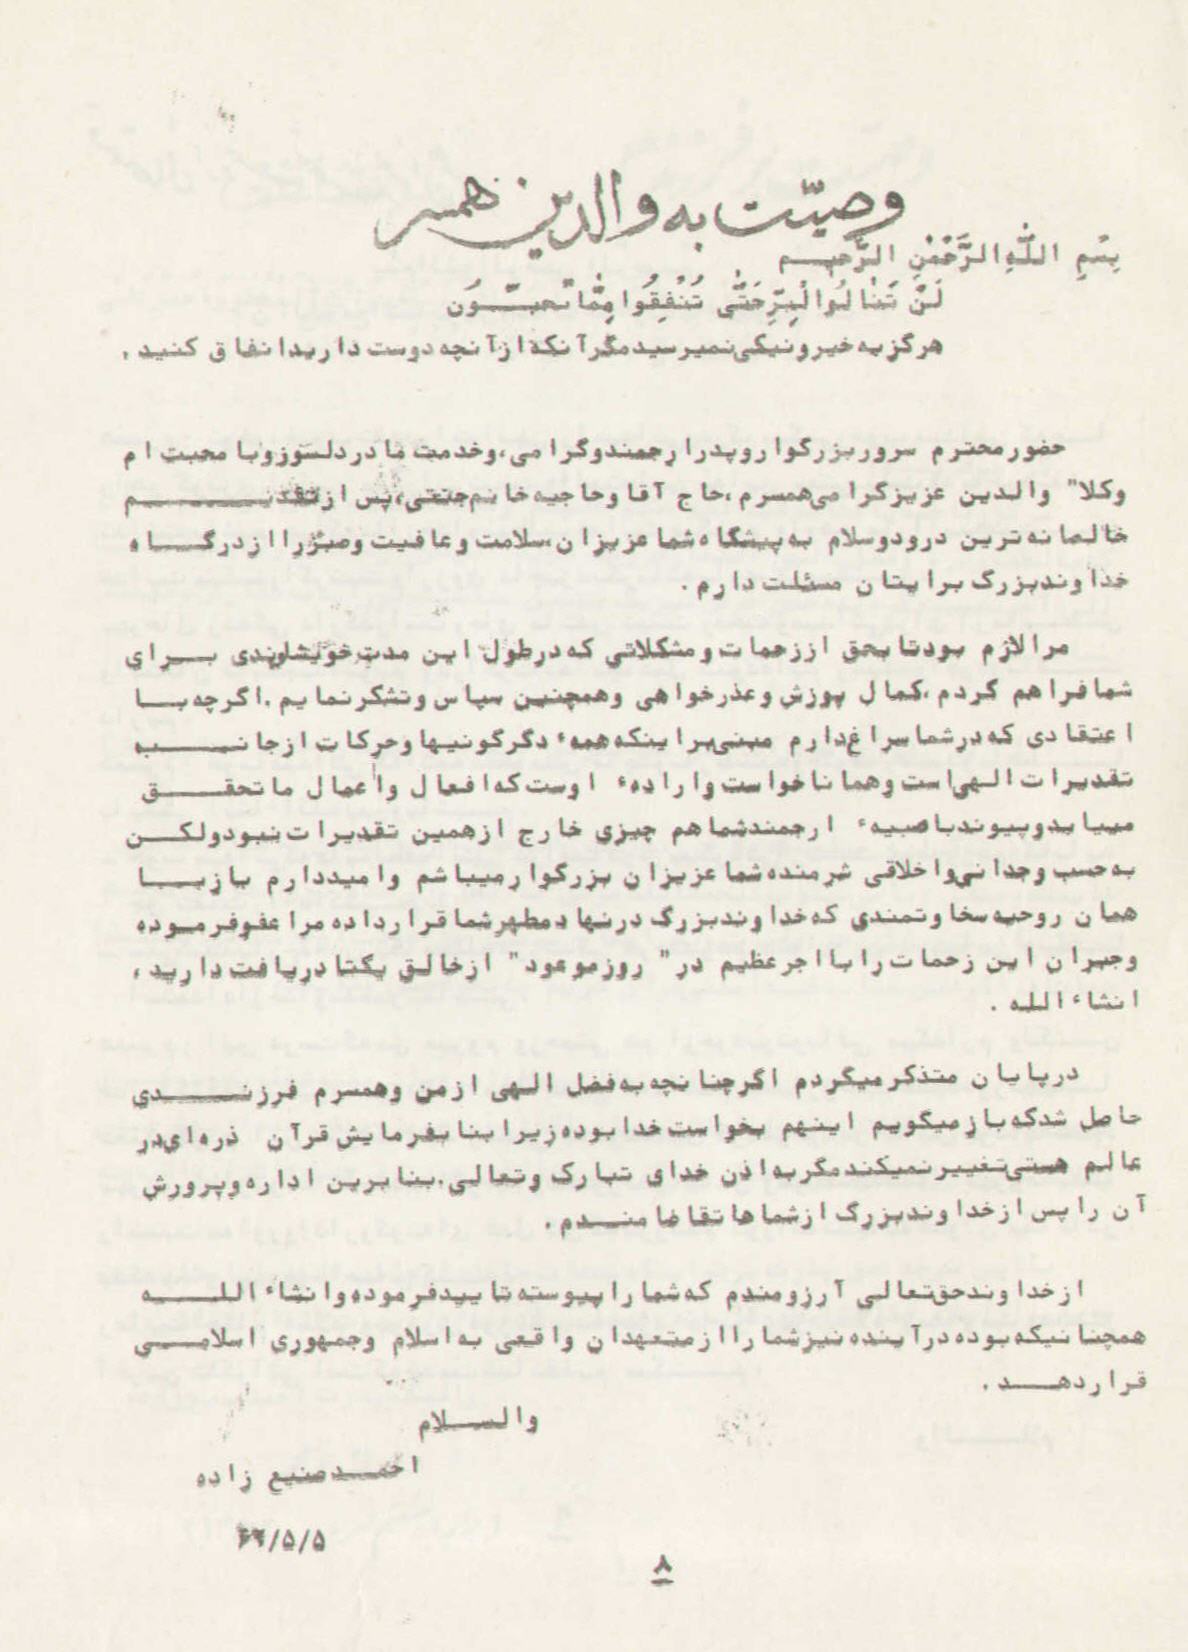 وصیّت به والدین همسر
بِسْمِ اللّهِ الرَّحْمنِ الرَّحیـم
لَنْ تَنٰالُوا لْبِرَّحَتّٰی تُنْفِقُوا مِمّٰا تُحِبّـُون
هرگز به خیر و نیکی نمیرسید مگر آنکه از آنچه دوست دارید انفاق کنید.
حضور محترم سرور بزرگوار و پدر ارجمند و گرامی، و خدمت مادر دلسوز و با محبت ام
وکلا" والدین عزیز گرامی همسرم، حاج آقا و حاجیه خانم جنتی، پس از تقدیـــم
خالصانه ترین درود و سلام به پیشگاه شما عزیزان، سلامت و عافیت و صبر را از درگـــاه
خداوند بزرگ برایتان مسئلت دارم.
مرا لازم بود تا بحق از زحمات و مشکلاتی که در طول این مدت خویشاوندی بـــرای
شما فراهم کردم، کمال پوزش و عذرخواهی و همچنین سپاس و تشکر نمایم. اگر چه بـــا
اعتقادی که در شما سراغ دارم مبنی بر اینکه همهٔ دگرگونیها و حرکات از جانـــب
تقدیرات الهی است و همانا خواست و ارادهٔ اوست که افعال و اعمال ما تحقـــق
مییابد و پیوند با صبیهٔ ارجمند شما هم چیزی خارج از همین تقدیرات نبود ولکـــن
به حسب وجدانی و اخلاقی شرمنده شما عزیزان بزرگوار میباشم و امید دارم باز بـــا
همان روحیه سخاوتمندی که خداوند بزرگ در نهاد مطهر شما قرار داده مرا عفو فرمـوده
و جبران این زحمات را با اجر عظیم در" روز موعود" از خالق یکتا دریافت دارید،
انشاء الله .
در پایان متذکر میگردم اگر چنانچه به فضل الهی از من و همسرم فرزنـــدی
حاصل شد که باز میگویم اینهم بخواست خدا بوده زیرا بنا بفرمایش قرآن ذره ای در
عالم هستی تغییر نمیکند مگر به اذن خدای تبارک و تعالی. بنابرین اداره و پرورش
آن را پس از خداوند بزرگ از شماها تقاضا منـــدم.
از خداوند حق تعالی آرزومندم که شما را پیوسته تایید فرموده و انشاء اللـــه
همچنانیکه بوده در آینده نیز شما را از متعهدان واقعی به اسلام و جمهوری اسلامـــی
قرار دهـــد .
والســـلام
احمـــد صنیع زاده
۶۶/۵/۵
۸